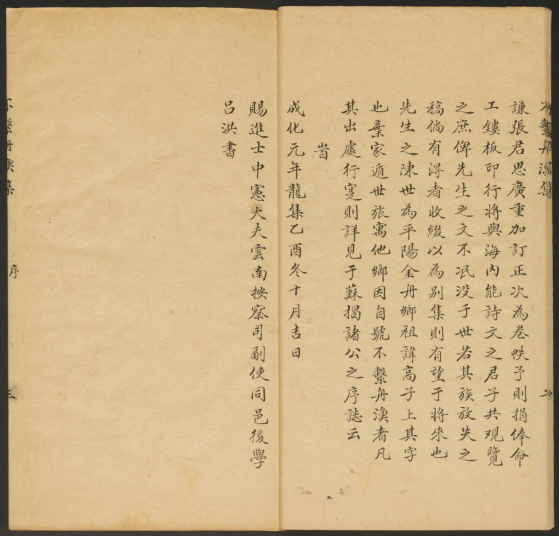 不繫舟漁集
謙張君思廣重加訂正次為卷帙予則捐俸命
工鏤板印行將與海內能詩文之君子共觀覽
之庶俾先生之文不泯没于世若其族放失之
稿倘有得者收綴以為别集則有望于將來也
先生之陳世為平陽金舟鄉祖諱高子上其字
也棄家遁世旅寓他鄉因自號不繫舟漁者凡
其出處行寔則詳見于蘇揭諸公之序誌云
旹
成化元年龍集乙酉冬十月吉日
賜進士中憲大夫雲南按察司副使同邑後學
呂洪書
不繫舟漁集
序
三